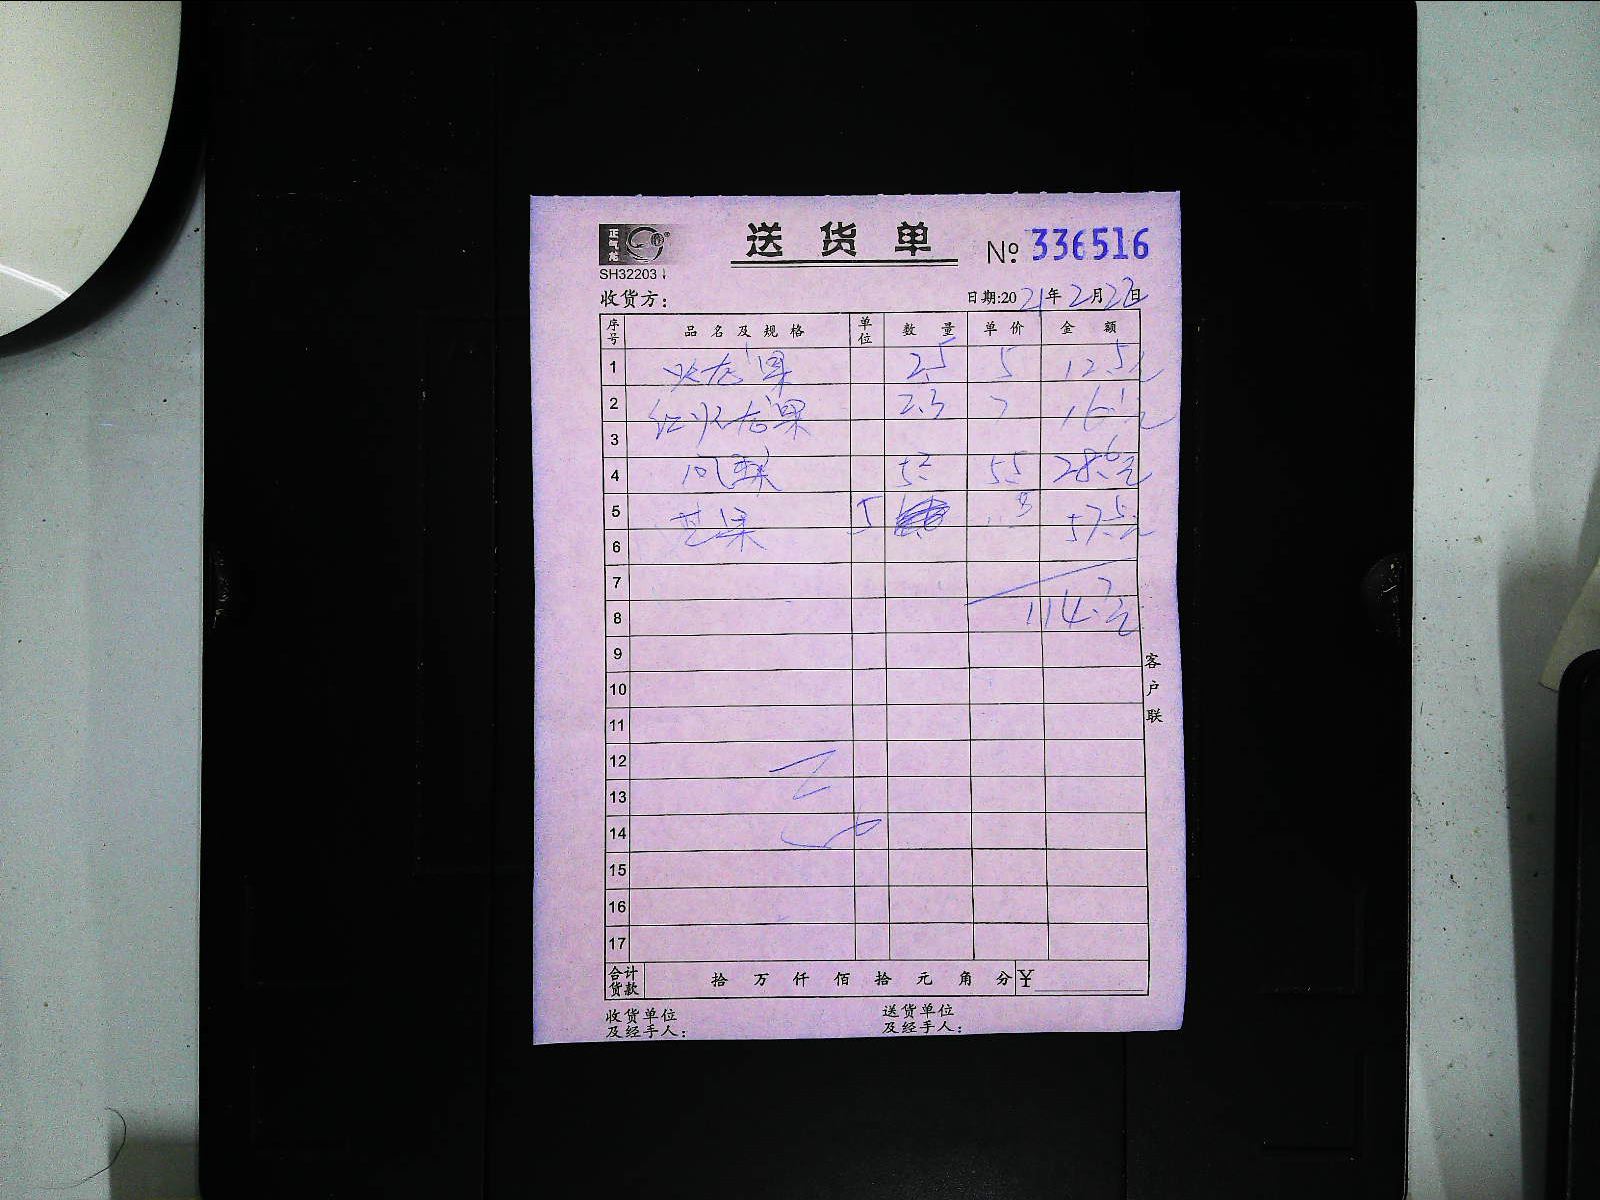 正气龙
送货单
№ 336516
SH32203
收货方：
日期:2021年2月22日
序号 品名及规格 单位 数量 单价 金额
1 火龙果 2.5 5 12.5元
2 红火龙果 2.3 7 16.1元
3
4 凤梨 5.2 5.5 28.6元
5 芒果 5 57.5元
6
7
8 114.7元
9
10
11
12
13
14
15
16
17
客户联
合计货款 拾万仟佰拾元角分 ¥
收货单位及经手人：
送货单位及经手人：